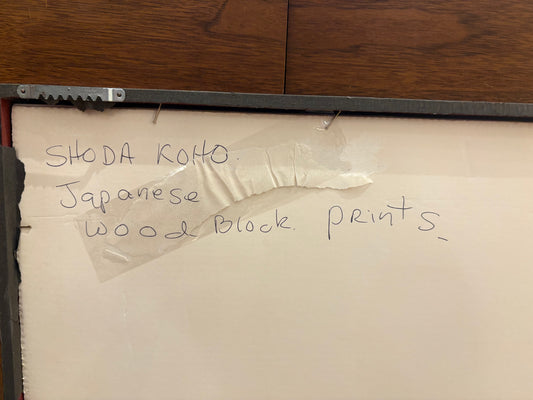 SHODA KOHO.
Japanese
Wood Block. prints